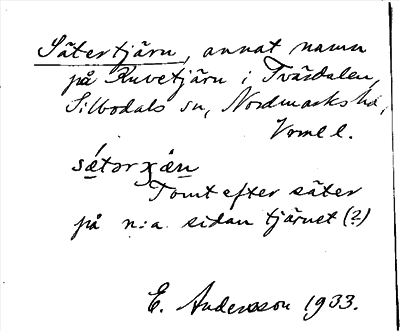 Sätertjärn, annat namn
på Kuvetjärn i Tvärdalen,
Silbodals sn, Nordmarks hd,
Vrml l.
sǽtərxæn
Tomt efter säter
på n:a sidan tjärnet (?)
E. Andersson 1933.